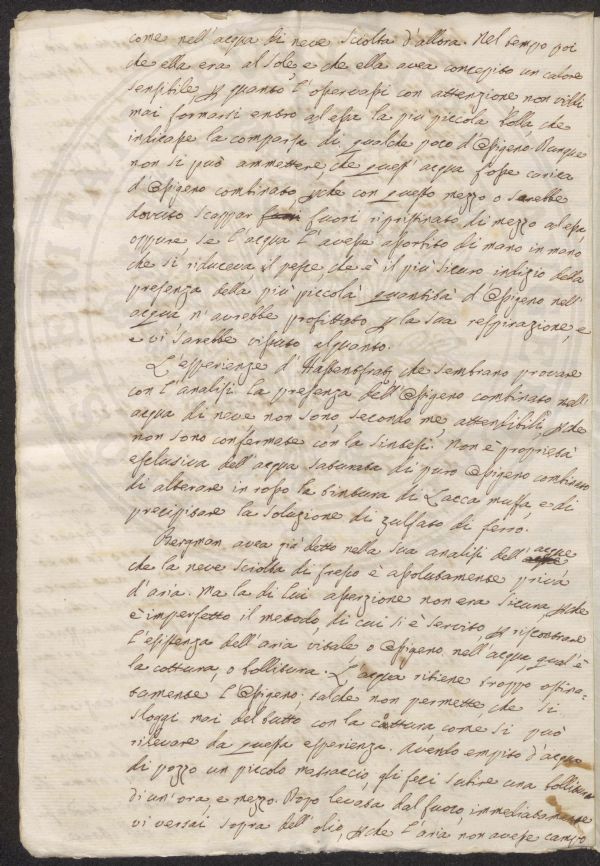 come nell'acqua di neve sciolta d'allora. Nel tempo poi
che ella era al Sole, e che ella avea concepito un calore
sensibile, p quanto l'osservassi con attenzione non vidi
mai formarsi entro ad essa la più piccola bolla che
indicasse la comparsa di qualche poco d'Ossigeno. Dunque
non si può ammettere che quest'acqua fosse carica
d'Ossigeno combinato pchè con questo mezzo o sarebbe
dovuto scappar fuori ripristinato di mezzo ad essa,
oppure se l'acqua l'avesse assorbito di mano in mano
che si riduceva il pesce che è il più sicuro indizio della
presenza della più piccola quantità d'Ossigeno nell'
acqua n'avrebbe profittato p la sua respirazione, e
e vi sarebbe vissuto alquanto.
L'esperienze d'Hassenfratz che sembrano provare
con l'analisi la presenza dell'Ossigeno combinato nell'
acqua di neve non sono, secondo me, attendibili, pchè
non sono confermate con la sintesi. Non è proprietà
esclusiva dell'acqua saturata di puro Ossigeno combinato
di alterare in rosso la tintura di Lacca muffa, e di
precipitare la soluzione di zulfato di ferro.
Bergman avea già detto nella sua analisi dell'acque
che la neve sciolta di fresco è assolutamente priva
d'aria. Ma la di lui asserzione non era sicura, pchè
è imperfetto il metodo, di cui si è servito, p riscontrare
l'esistenza dell'aria vitale o Ossigeno nell'acqua, qual'è
la cottura, o bollitura. L'acqua ritiene troppo ostina=
tamente l'Ossigeno; talchè non permette, che si
sloggi mai del tutto con la cottura, come si può
rilevare da questa esperienza. Avendo empito d'acqua
di pozzo un piccolo matraccio, gli feci subire una bollitura
di un'ora, e mezzo. Dopo levata dal fuoco immediatamente
vi versai sopra dell'olio, pchè l'aria non avesse campo